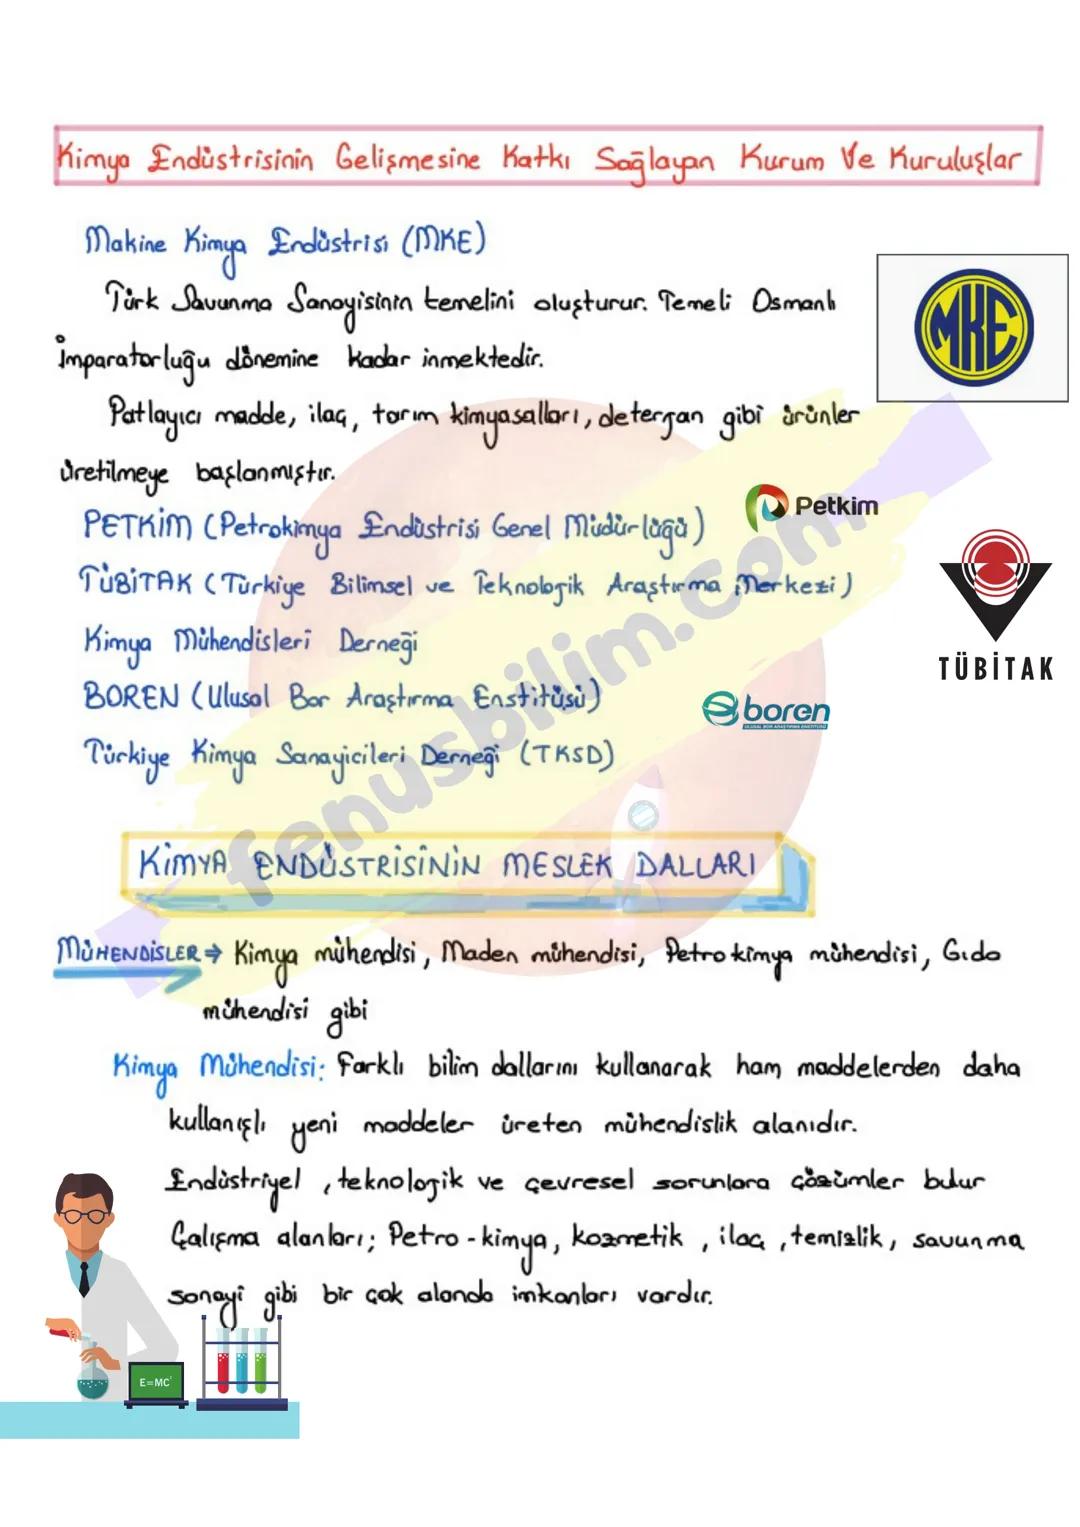 Kimya Endüstrisinin Gelişmesine Katkı Sağlayan Kurum Ve Kuruluşlar
Makine Kimya Endüstrisi (MKE)
Türk Savunma Sanayisinin temelini oluşturur. Temeli Osmanlı
İmparatorluğu dönemine kadar inmektedir.
MKE
Patlayıcı madde, ilaç, tarım kimyasalları, deterjan gibi ürünler
üretilmeye başlanmıştır.
PETKİM (Petrokimya Endüstrisi Genel Müdürlüğü)
Petkim
TÜBİTAK (Türkiye Bilimsel ve Teknolojik Araştırma Merkezi)
Kimya Mühendisleri Derneği
TÜBİTAK
BOREN (Ulusal Bor Araştırma Enstitüsü)
boren
ULUSAL BOR ARAŞTIRMA ENSTİTÜSÜ
Türkiye Kimya Sanayicileri Derneği (TKSD)
fenusbilim.com
KİMYA ENDÜSTRİSİNİN MESLEK DALLARI
MÜHENDİSLER⇒ Kimya mühendisi, Maden mühendisi, Petrokimya mühendisi, Gıda
mühendisi gibi
Kimya Mühendisi: Farklı bilim dallarını kullanarak ham maddelerden daha
kullanışlı yeni maddeler üreten mühendislik alanıdır.
Endüstriyel, teknolojik ve çevresel sorunlara çözümler bulur
Çalışma alanları; Petro-kimya, kozmetik, ilaç, temizlik, savunma
sanayi gibi bir çok alanda imkanları vardır.
E=MC²